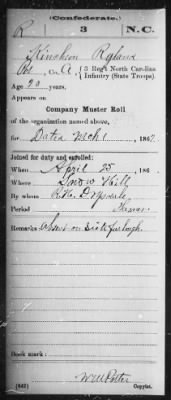 (Confederate.)
R 3 N.C.
Kinchen Ryland
Pvt, Co. A, 3 Reg't North Carolina
Infantry (State Troops)
Age 20 years.
Appears on
Company Muster Roll
of the organization named above,
for Dated Mch 1, 186
Joined for duty and enrolled:
When April 25, 186
Where Snow Hill
By whom
Period
Remarks: absent on sick furlough.
Book mark:
(642) Copyist.